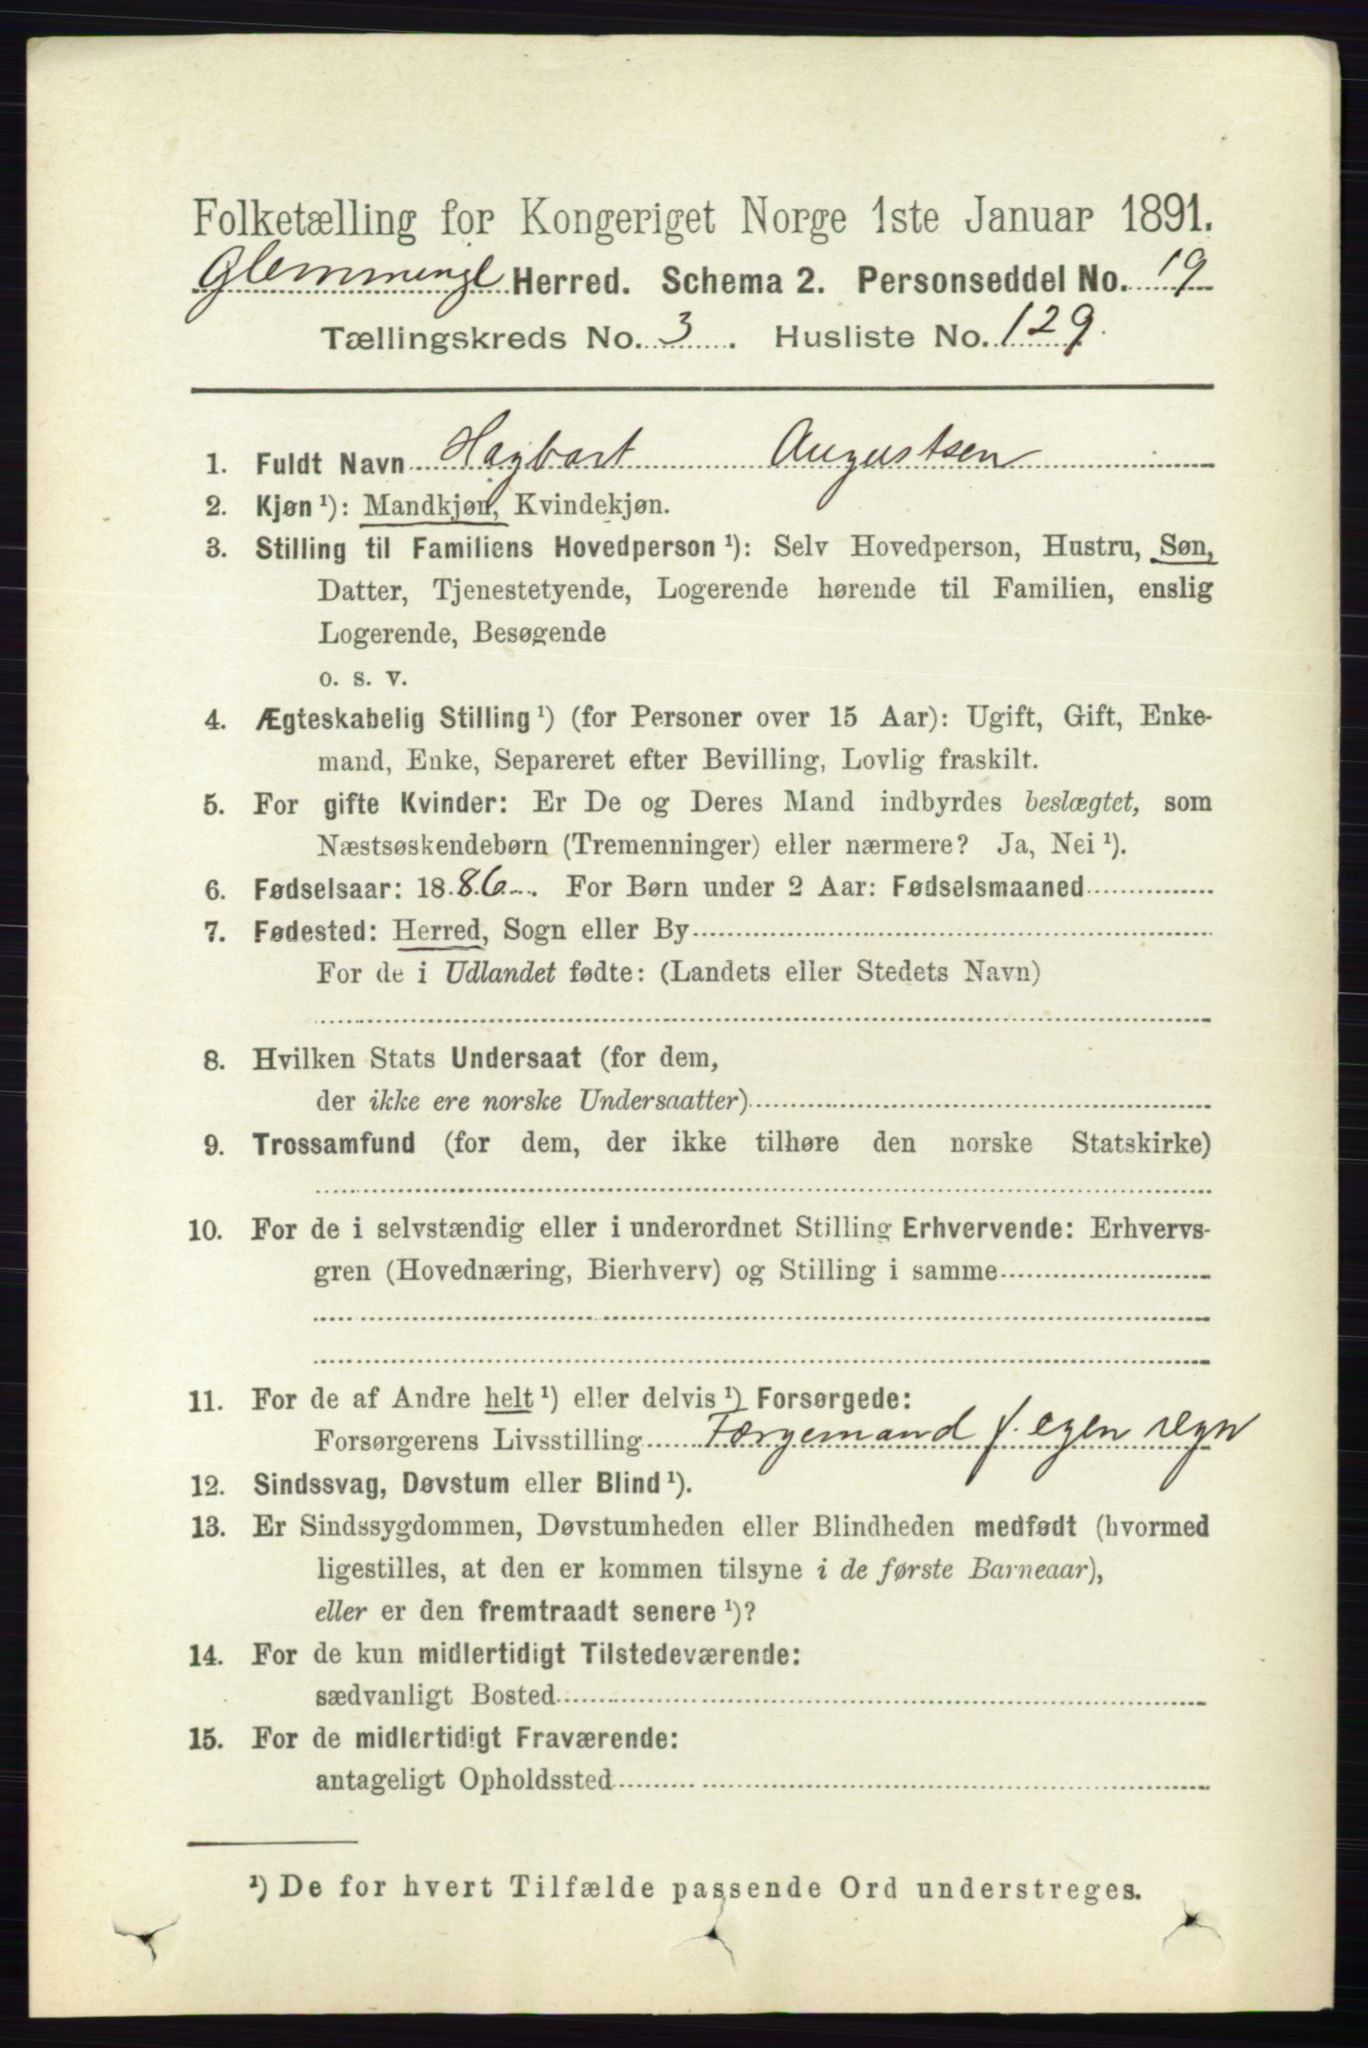 Folketælling for Kongeriget Norge 1ste Januar 1891.
Glemminge Herred. Schema 2. Personseddel No. 19
Tællingskreds No. 3. Husliste No. 129.
1. Fuldt Navn Hagbart Augustsen
2. Kjøn¹): Mandkjøn, Kvindekjøn.
3. Stilling til Familiens Hovedperson¹): Selv Hovedperson, Hustru, Søn,
Datter, Tjenestetyende, Logerende hørende til Familien, enslig
Logerende, Besøgende
o. s. v.
4. Ægteskabelig Stilling¹) (for Personer over 15 Aar): Ugift, Gift, Enke-
mand, Enke, Separeret efter Bevilling, Lovlig fraskilt.
5. For gifte Kvinder: Er De og Deres Mand indbyrdes beslægtet, som
Næstsøskendebørn (Tremenninger) eller nærmere? Ja, Nei¹).
6. Fødselsaar: 1886. For Børn under 2 Aar: Fødselsmaaned
7. Fødested: Herred, Sogn eller By
For de i Udlandet fødte: (Landets eller Stedets Navn)
8. Hvilken Stats Undersaat (for dem,
der ikke ere norske Undersaatter)
9. Trossamfund (for dem, der ikke tilhøre den norske Statskirke)
10. For de i selvstændig eller i underordnet Stilling Erhvervende: Erhvervs-
gren (Hovednæring, Bierhverv) og Stilling i samme
11. For de af Andre helt¹) eller delvis¹) Forsørgede:
Forsørgerens Livsstilling Færgemand f. egen regn
12. Sindssvag, Døvstum eller Blind¹).
13. Er Sindssygdommen, Døvstumheden eller Blindheden medfødt (hvormed
ligestilles, at den er kommen tilsyne i de første Barneaar),
eller er den fremtraadt senere¹)?
14. For de kun midlertidigt Tilstedeværende:
sædvanligt Bosted
15. For de midlertidigt Fraværende:
antageligt Opholdssted
¹) De for hvert Tilfælde passende Ord understreges.